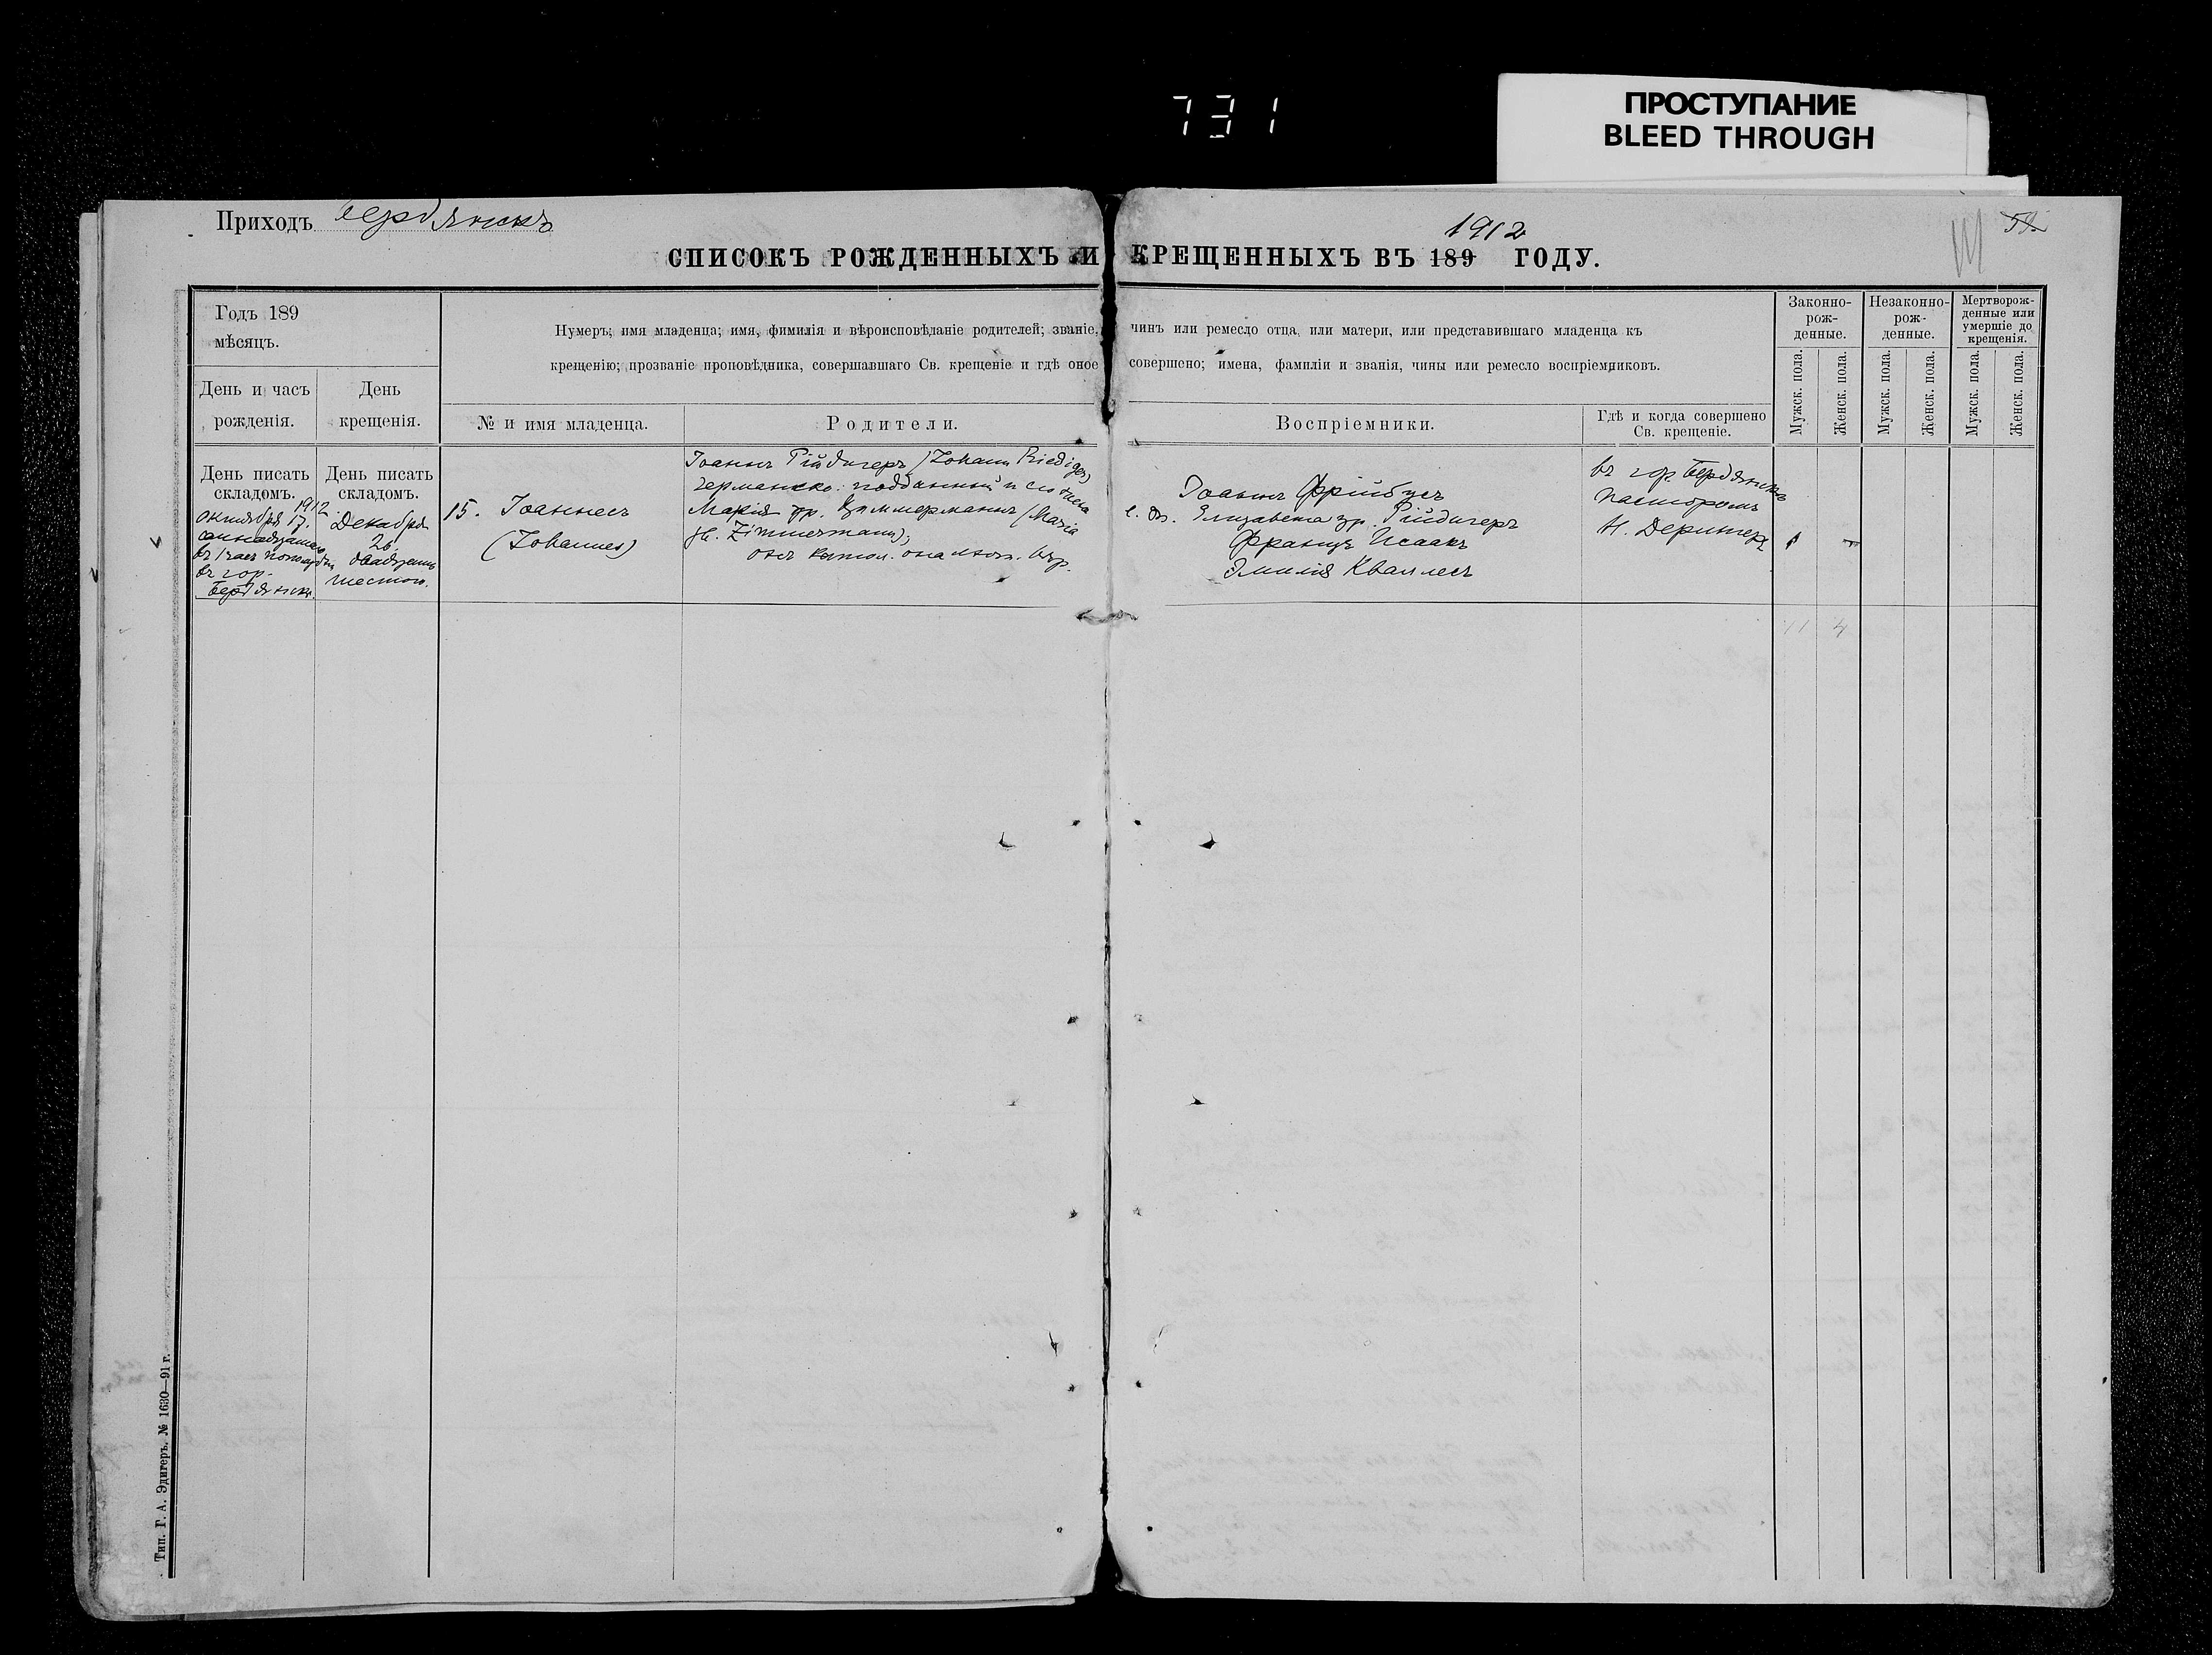 731
ПРОСТУПАНИЕ
BLEED THROUGH
Приходъ Бердянскъ
1912
СПИСОКЪ РОЖДЕННЫХЪ И КРЕЩЕННЫХЪ ВЪ 189 ГОДУ.
Годъ 189
мѣсяцъ.
День и часъ
рожденія.
День
крещенія.
Нумеръ; имя младенца; имя, фимилія и вѣроисповѣданіе родителей; званіе, чинъ или ремесло отца, или матери, или представившаго младенца къ
крещенію; прозваніе проповѣдника, совершавшаго Св. крещеніе и гдѣ оное совершено; имена, фамиліи и званія, чины или ремесло воспріемниковъ.
№ и имя младенца.
Родители.
Воспріемники.
Гдѣ и когда совершено
Св. крещеніе.
Законно-
рож-
денные.
Незаконно-
рож-
денные.
Мертворож-
денные или
умершіе до
крещенія.
Мужск. пола.
Женск. пола.
Мужск. пола.
Женск. пола.
Мужск. пола.
Женск. пола.
День писать
складомъ.
1912
октября 17.
семнадцатаго
въ 1 часъ
въ гор.
Бердянскѣ.
День писать
складомъ.
Декабря
26.
двадцать
шестого.
15. Іоаннесъ
(Johannes)
Іоаннъ Рійдигеръ (Johann Riediger)
германско. подданный и его жена
Марія ур. Циммерманнъ (Maria
Zimmermann);
онъ катол. она лют. вѣр.
Іоаннъ Фрійбусъ
Елизавета ур. Рійдигеръ
Францъ Исаакъ
Эмилія Кваллесъ
въ гор. Бердянскѣ
пасторомъ
Н. Деринтеръ
1
11 4
Тип. Г. А. Эдигеръ. № 1630—91 г.